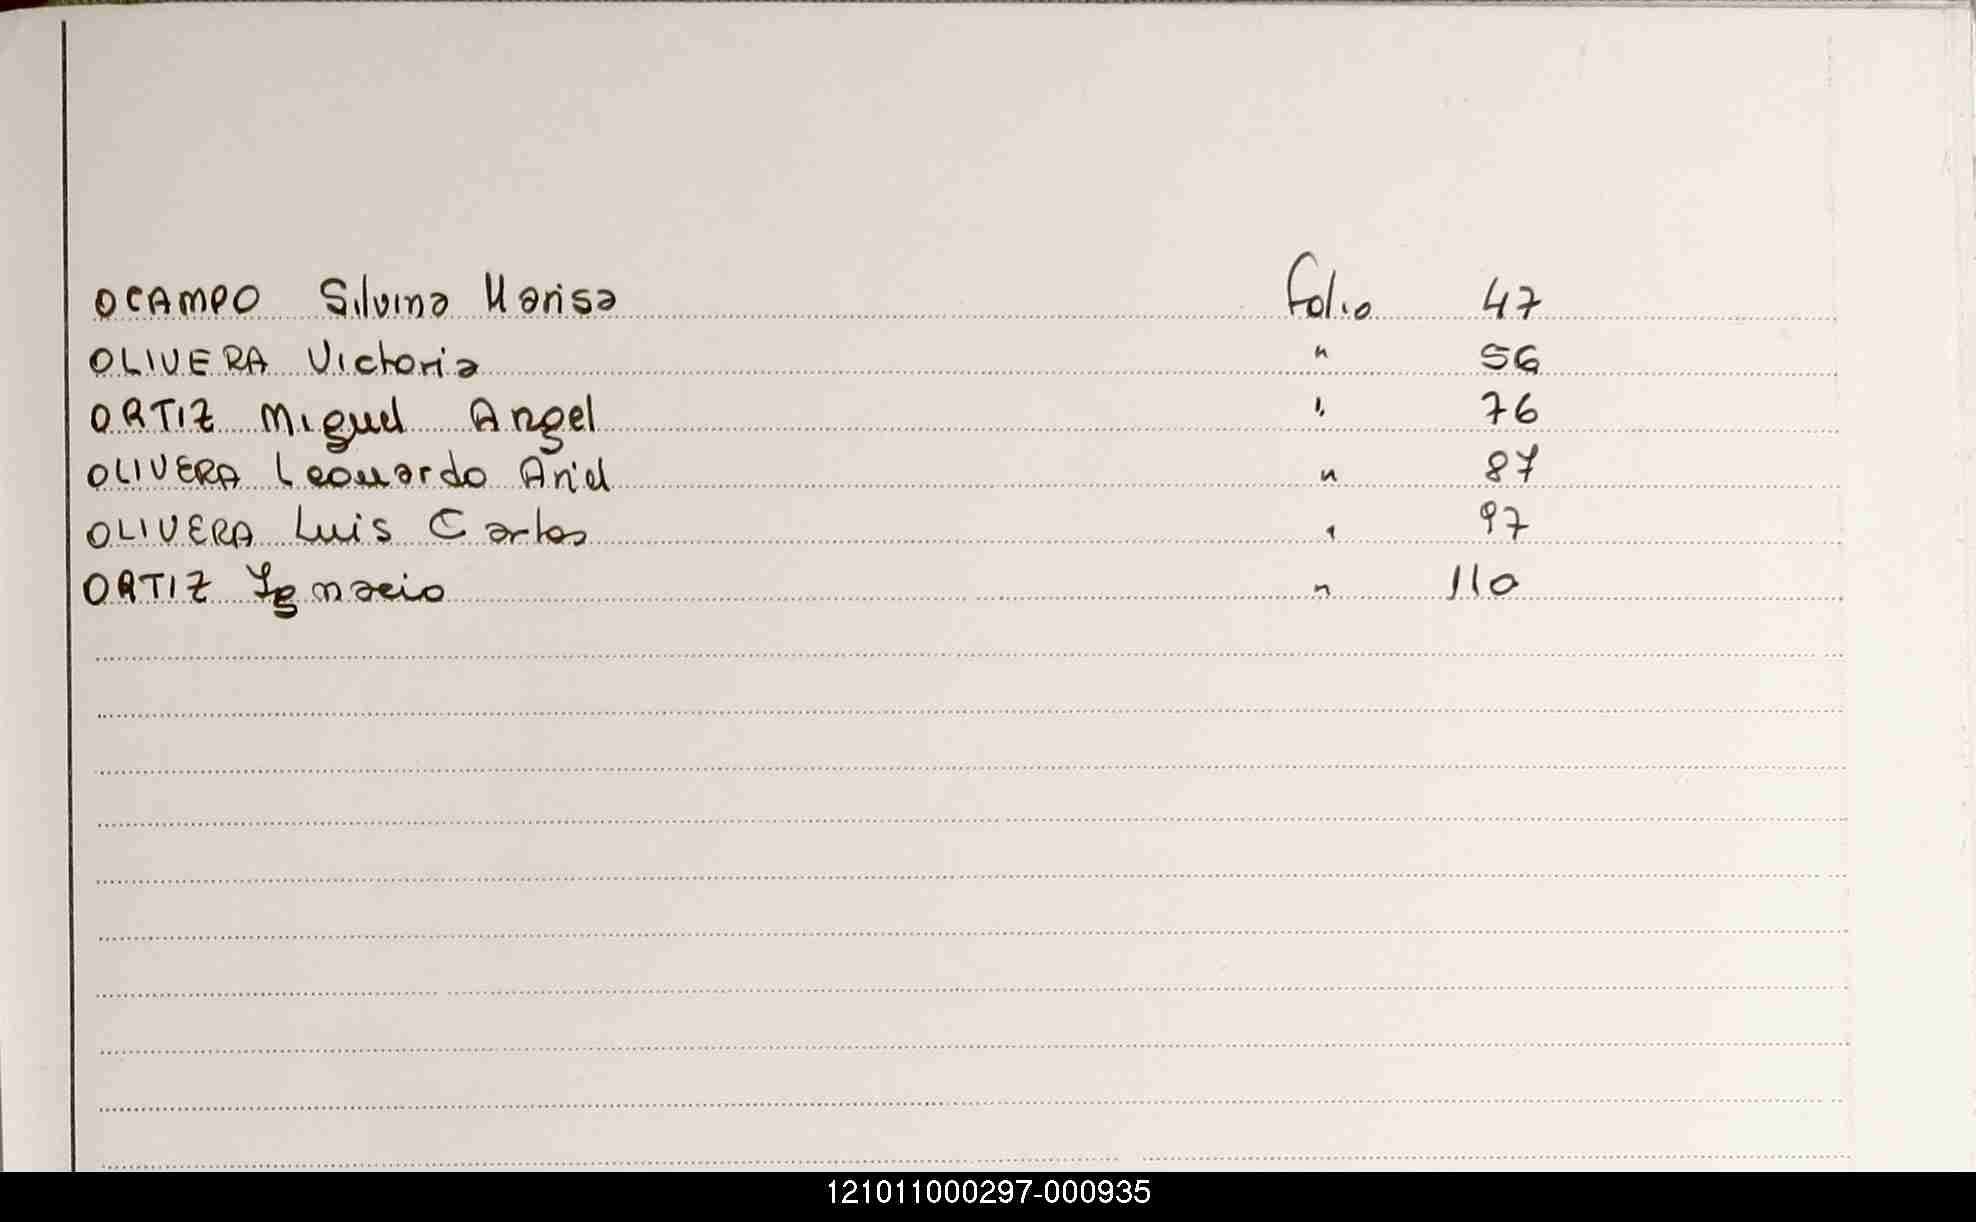 OCAMPO Silvina Marisa Folio 47
OLIVERA Victoria " 56
ORTIZ Miguel Angel " 76
OLIVERA Leonardo Ariel " 87
OLIVERA Luis Carlos " 97
ORTIZ Ignacio " 110
121011000297-000935